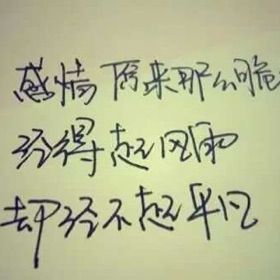 感情原来那么脆
经得起风雨
却经不起平凡